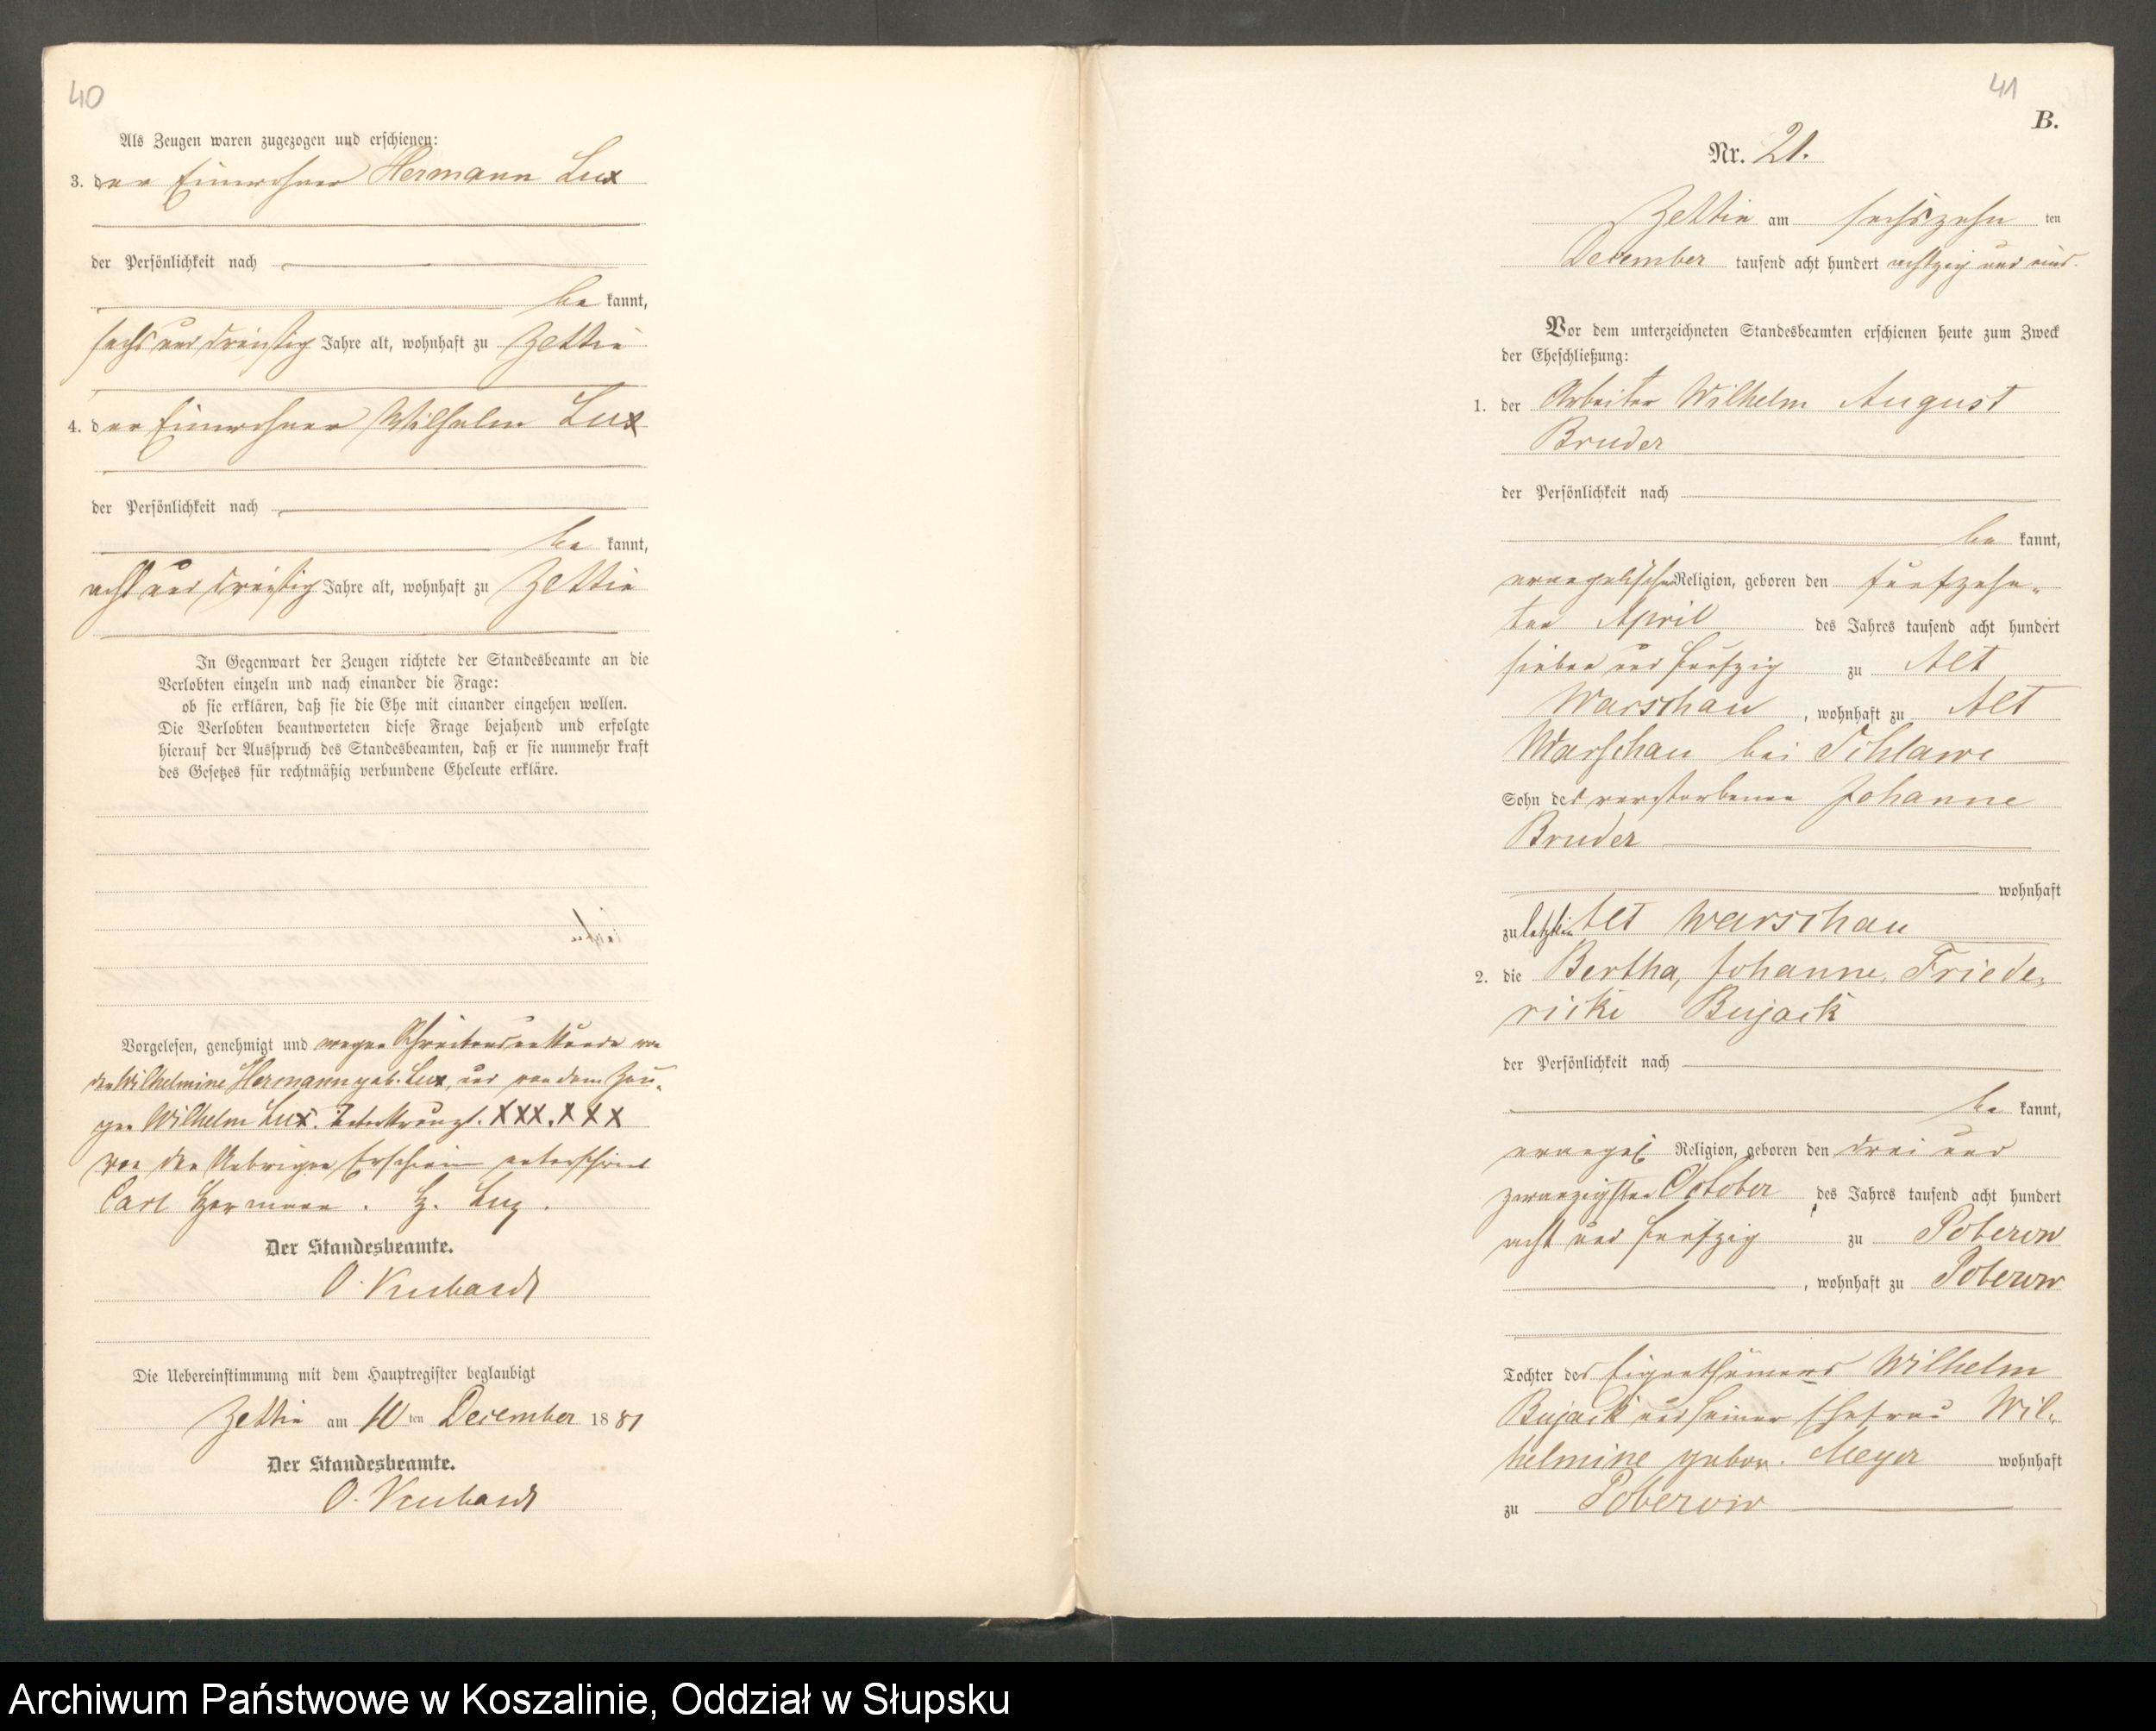 40
Als Zeugen waren zugezogen und erschienen:
3. der Einwohner Hermann Lux
der Persönlichkeit nach
be kannt,
sechs und dreißig Jahre alt, wohnhaft zu Zettin
4. der Einwohner Wilhelm Lux
der Persönlichkeit nach
be kannt,
acht und dreißig Jahre alt, wohnhaft zu Zettin
In Gegenwart der Zeugen richtete der Standesbeamte an die
Verlobten einzeln und nach einander die Frage:
ob sie erklären, daß sie die Ehe mit einander eingehen wollen.
Die Verlobten beantworteten diese Frage bejahend und erfolgte
hierauf der Ausspruch des Standesbeamten, daß er sie nunmehr kraft
des Gesetzes für rechtmäßig verbundene Eheleute erkläre.
Vorgelesen, genehmigt und wegen Schreibensunkunde von
der Wilhelmine Hermann geb. Lux, und von dem Zeu-
gen Wilhelm Lux. Unterkreuzt. XXX. XXX
von den Uebrigen Erschien unterschrieb
Carl Hermann. H. Lux.
Der Standesbeamte.
O.
Die Uebereinstimmung mit dem Hauptregister beglaubigt
Zettin am 10 ten December 1881
Der Standesbeamte.
O.
41
B.
Nr. 21.
Zettin am sechszehn ten
December tausend acht hundert achtzig und eins.
Vor dem unterzeichneten Standesbeamten erschienen heute zum Zweck
der Eheschließung:
1. der Arbeiter Wilhelm August
Bruder
der Persönlichkeit nach
be kannt,
evangelischer Religion, geboren den fünfzehn-
ten April des Jahres tausend acht hundert
sieben und fünfzig zu Alt
Warschau, wohnhaft zu Alt
Warschau bei Schlawe
Sohn der verstorbenen Johanne
Bruder
wohnhaft
zuletzt in Alt Warschau
2. die Bertha, Johanne, Friede-
ricke Bujack
der Persönlichkeit nach
be kannt,
evangel Religion, geboren den drei und
zwanzigsten October des Jahres tausend acht hundert
acht und fünfzig zu Poberow
, wohnhaft zu Poberow
Tochter des Eigenthümers Wilhelm
Bujack und seiner Ehefrau Wil-
helmine gebor. Meyer wohnhaft
zu Poberow
Archiwum Państwowe w Koszalinie, Oddział w Słupsku